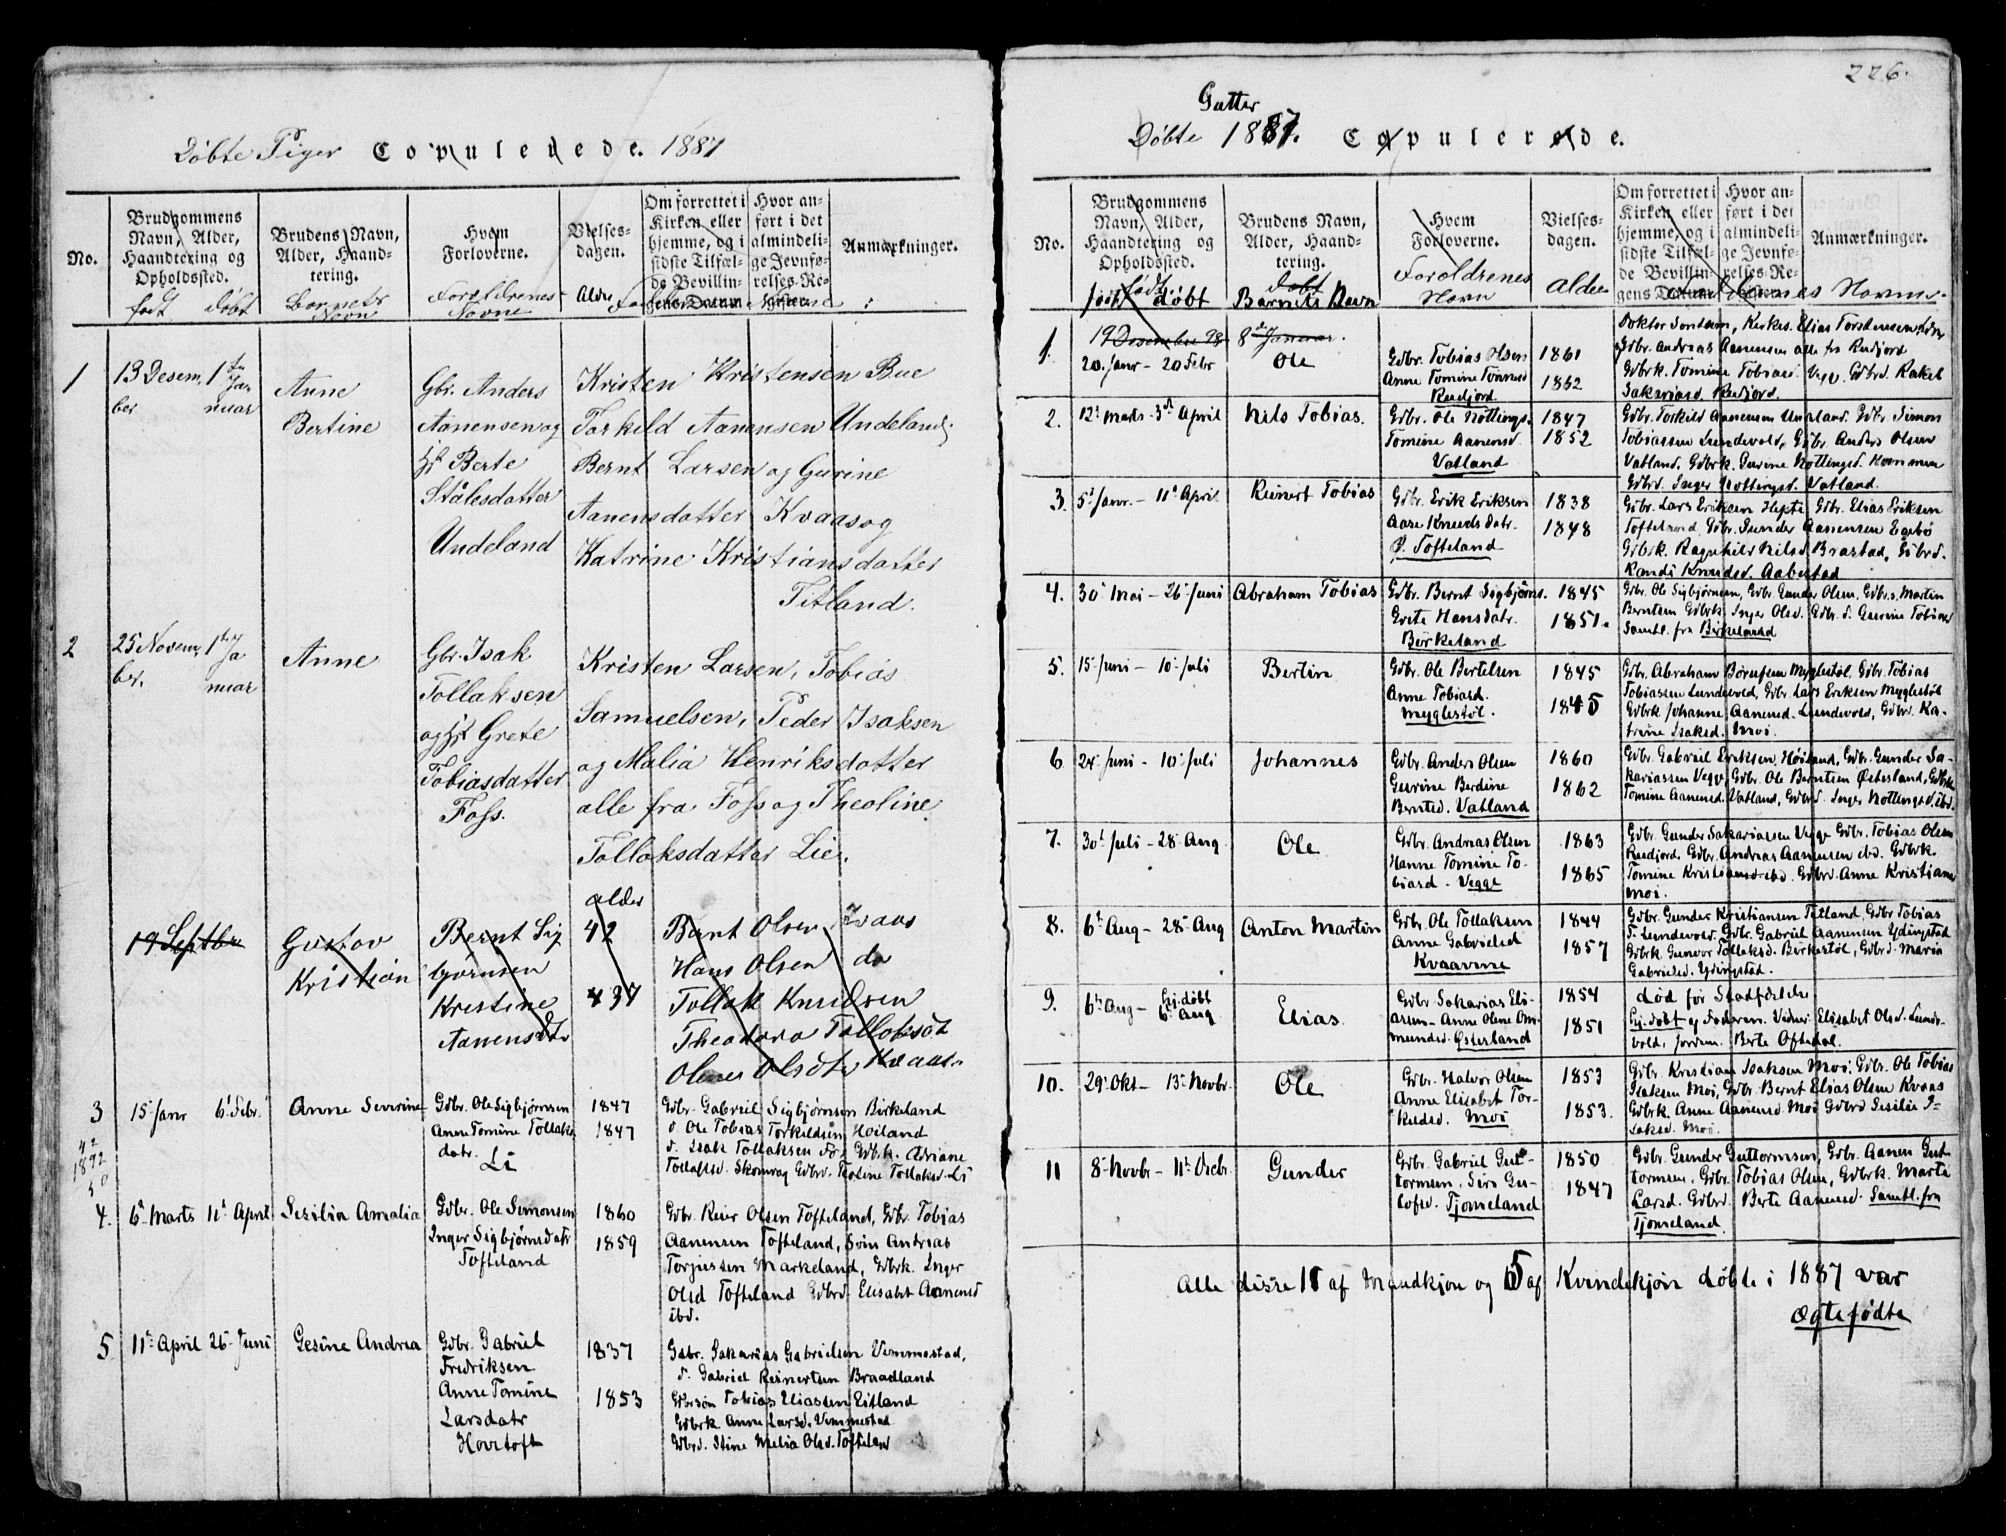 Døbte Piger Copulerede. 1887
No.
Brudgommens Navn, Alder, Haandtering og Opholdssted.
Brudens Navn, Alder, Haandtering.
Hvem Forloverne.
Vielsesdagen.
Om forrettet i Kirken eller hjemme, og i sidste Tilfælde Bevillingens Datum
Hvor anført i det almindelige Jevnførelses-Register.
Anmærkninger.
født døbt
Barnets Navn
Forældrenes Navne
Alder
1
13 Desember
1ste Januar
Anne
Bertine
Gbr. Anders
Aanensen og
Berte
Stålesdatter
Undeland
Kristen Kristensen Bue
Torkild Aanensen Undeland,
Bernt Larsen og Gurine
Aanensdatter Kvaas og
Katrine Kristiansdatter
Titland.
2
25 November.
1ste Januar
Anne
Gbr. Isak
Tollaksen
og Grete
Tobiasdatter
Foss.
Kristen Larsen, Tobias
Samuelsen, Peder Isaksen
og Malia Henriksdatter
alle fra Foss og Theoline
Tollaksdatter Lie.
alder
19 Septbr
Gustav
Kristian
Bernt Sig
bjørnsen
Kristine
Aanensdtr
42
Bernt Olsen Kvaas
Hans Olsen do
Tollak Knudsen
Theodora Tollaksdt
Olene Olsdtr Kvaas
3
15 Janr 6 Febr.
Anne Severine
Gdbr. Ole Sigbjørnsen
Anne Tomine Tollaks
datr.
Li
1847
1847
Gdbr. Gabriel Sigbjørnsen Birkeland
Ole Tobias Torkildsen Høiland
Isak Tollaksen Fos, Gdbrk. Adriane
Tollefsd. Skomrag Gdbrd. Teoline Tollaksd. Li
4.
6te Marts 11te April
Sesilia Amalia
Gdbr. Ole Simonsen
Inger Sigbjørnsdatr
Tofteland
1860
1859
Gdbr. Reier Olsen Tofteland, Gdbr. Tobias
Aanensen Tofteland, Svin Andreas
Torjussen Markeland, Gdbrk. Inger
Olsd Tofteland Gdbrd. Elisabet Aanensd
ibd.
5
11te April 26 Juni
Gesine Andrea
Gdbr. Gabriel
Fredriksen
Anne Tomine
Larsdatr
Hovstoft
1837
1853
Gdbr. Sakarias Gabrielsen Vemmestad,
Gabriel Reinertsen Braadland
Gdbrsøn Tobias Eliassen Eitland
Gdbrk Anne Larsd. Vemmestad
Gdbrd. Stine Melia Olsd. Tofteland
226.
Gutter
Døbte 1887. Copulerede.
No.
Brudgommens Navn, Alder, Haandtering og Opholdssted.
Brudens Navn, Alder, Haandtering.
Hvem Forloverne.
Vielsesdagen.
Om forrettet i Kirken eller hjemme, og i sidste Tilfælde Bevillingens Datum
Hvor anført i det almindelige Jevnførelses-Register.
Anmærkninger.
født døbt
Barnets Navn
Forældrenes
Navn
Alder
Navne.
1
19 Desember 8de Januar.
20. Janr - 20 Febr
Ole
Gdbr. Tobias Olsen
Anne Tomine Tønnesd
Rudjord
1861
1862
Gdbr. Andreas Aanensen alle fra Rudjord
Gdbrk. Tomine Tobiasd. Vegge. Gdbrd. Rakel
Sakariasd. Rudjord.
2.
12te Marts - 3de April
Nils Tobias.
Gdbr. Ole Nottings.
Tomine Aanensd.
Vatland
1847
1852
Gdbr. Torkild Aanensen Undeland. Gdbr. Simon
Tobiassen Lundevold, Gdbr. Anders Olsen
Vatland, Gdbrk. Gurine Nottingsd. Kommun
Gdbrd. Inger Nottingsd. Vatland.
3.
5te Janr. - 11te April
Reinert Tobias
Gdbr. Erik Eriksen
Aase Knudsdatr.
Tofteland
1838
1848
Gdbr. Lars Eriksen Hepte Gdbr. Elias Eriksen
Tofteland, Gdbr. Gunder Aanensen Egebø
Gdbrk. Ragnhild Nilsd Brastad, Gdbrd.
Randi Knudsd. Aabestad
4.
30te Mai - 26te Juni
Abraham Tobias
Gdbr. Bernt Sigbjørns.
Grete Hansdatr.
Birkeland
1845
1851.
Gdbr. Ole Sigbjørnsen, Gdbr. Gunder Olsen, Gdbrs. Martin
Berntsen Gdbrk. Inger Olsd. Gdbrd. Gurine Tobiasd
Samtl. fra Birkeland
5.
15 Juni - 10te Juli
Bertin
Gdbr. Ole Bertelsen
Anne Tobiasd.
Myglestøl.
1845
1845
Gdbr. Abraham Børufsen Myglestøl, Gdbr. Tobias
Tobiassen Lundevold, Gdbr. Lars Eriksen Myglestøl
Gdbrk Johanne Aanensd. Lundevold, Gdbrd. Ka-
trine Isaksd. Moi.
6
24 Juni - 10te Juli
Johannes
Gdbr. Anders Olsen
Gurine Berdine
Berntsd. Vatland
1860
1862
Gdbr. Gabriel Eriksen Høiland, Gdbr. Gunder Sa-
kariassen Vegge, Gdbr. Ole Berntsen Østerland, Gdbrk
Tomine Aanensd. Vatland, Gdbrd. Inger Nottingsd. ibd.
7.
30te Juli - 28 Aug
Ole
Gdbr. Andreas Olsen
Hanne Tomine To-
biasd. Vegge
1863
1865
Gdbr. Gunder Sakariassen Vegge Gdbr. Tobias Olsen
Rudjord, Gdbr. Andreas Aanensen ibd. Gdbrk.
Tomine Kristiansd. ibd. Gdbrd. Anne Kristiane
Moi.
8.
6te Aug - 28 Aug
Anton Martin
Gdbr. Ole Tollaksen
Anne Gabrielsd
Kvaavine
1844
1857
Gdbr. Gunder Kristiansen Titland, Gdbr Tobias
T. Lundevold, Gdbr. Gabriel Aanensen Ydingstad
Gdbrk. Gunvor Tollaksd. Birkestøl, Gdbrd. Maria
Gabrielsd. Ydingstad.
9.
6te Aug - hj. døbt
6te Aug
Elias
Gdbr Sakarias Eli-
assen - Anne Olene Om-
mundsd. Østerland
1854
1851
død før Stadfæstelse
hj. døbt af Faderen. Vidner: Elisabet Olsd. Lunde-
vold, Jordm. Berte Oftedal.
10.
29te Okt - 13te Novbr.
Ole
Gdbr. Halvor Olsen
Anne Elisabet Tor-
kildsd. Moi
1853
1853.
Gdbr. Kristian Isaksen Moi, Gdbr. Ole Tobias
Isaksen Moi, Gdbr. Bernt Elias Olsen Kvaas
Gdbrk. Anne Aanensd. Moi Gdbrd Sesilie I-
saksd. Moi.
11
8 Novbr - 11te Decbr.
Gunder
Gdbr. Gabriel Gut-
tormsen, Siri Gu-
lofsd. Tjomsland
1850
1847
Gdbr. Gunder Guttormsen, Gdbr. Aanen Gut-
tormsen, Gdbr. Tobias Olsen, Gdbrk. Marta
Larsd. Gdbrd. Berte Aanensd. Samtl. fra
Tjomsland
Alle disse 11 af Mandkjøn og 5 af Kvindekjøn døbte i 1887 var
Ægtefødte